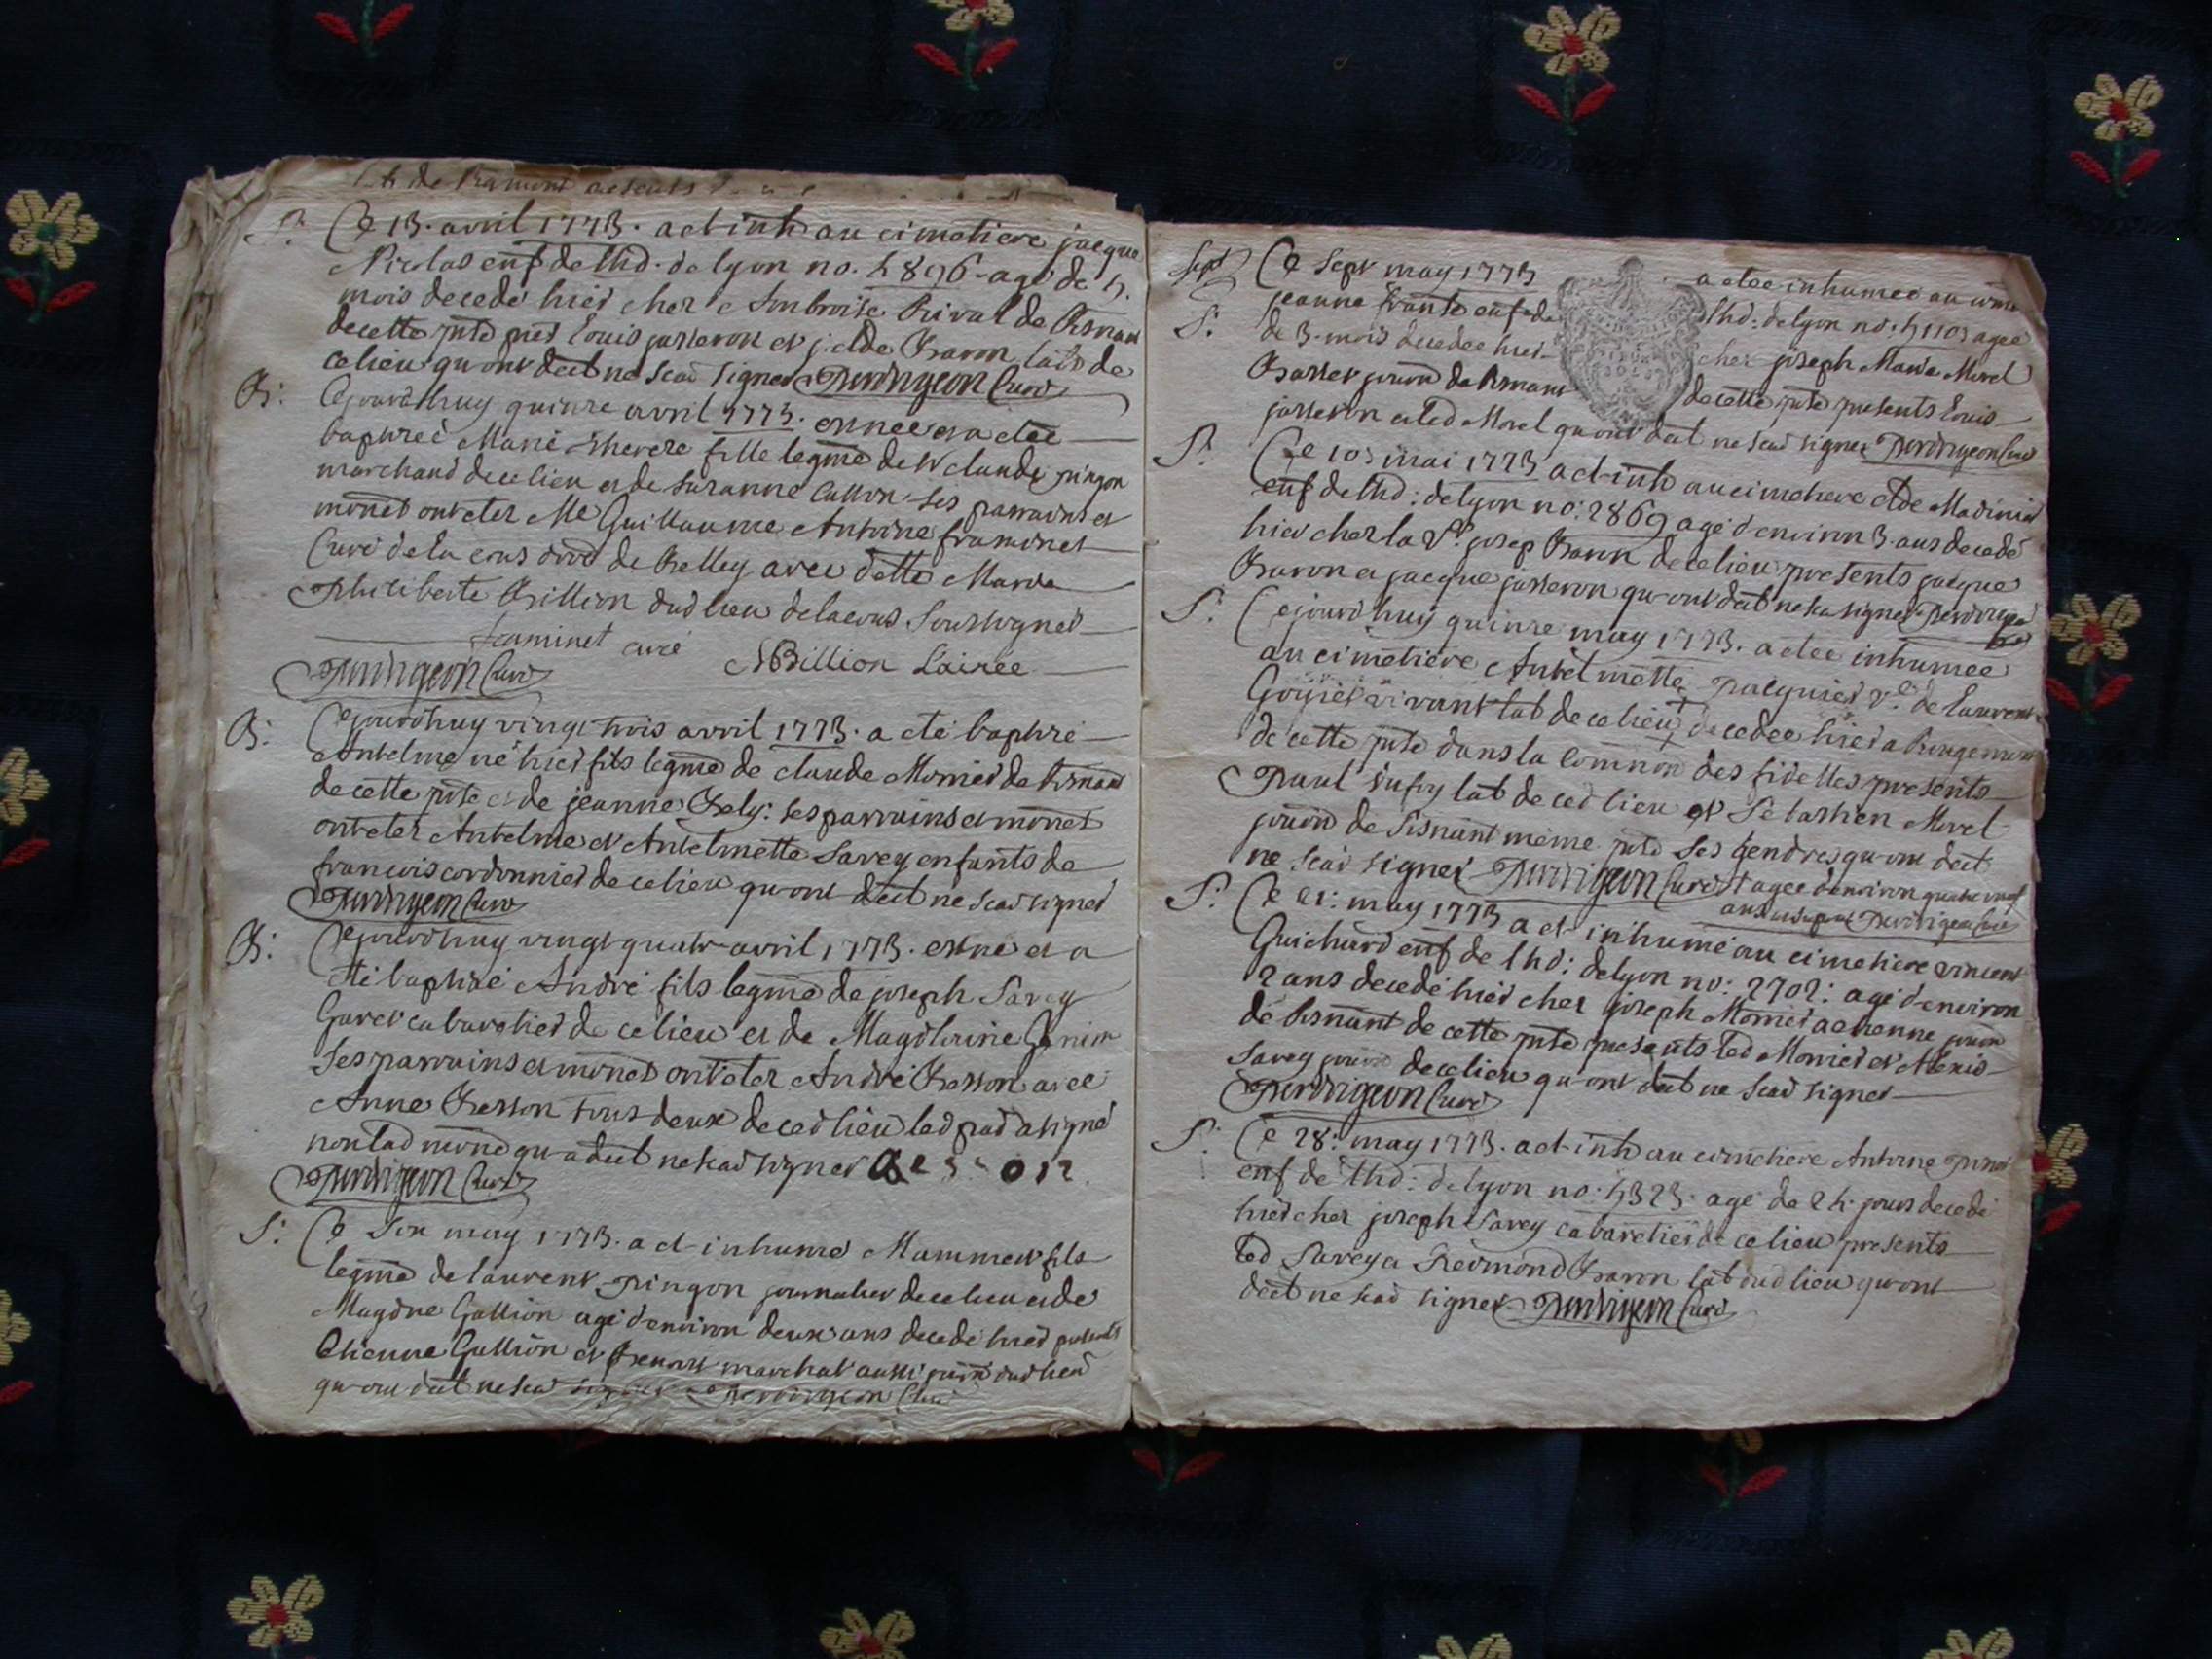 de Pramont presents
S. Ce 13. avril 1773. a et inh au cimetiere jacque
Nicolas enf de lhd. de lyon no. 4896 agé de 5.
mois decedé hier chez Ambroise Rival de
de cette psse pnts Louis jasseron et j. clde Baron labs de
ce lieu qu ont déct ne scav signer Perdrigeon Curé
B: Cejourdhuy quinze avril 1773. est née et a etée
baptizée Marie therese fille legme de Sr claude pingon
marchand de ce lieu et de Suzanne Callion ses parrains et
mones ont eter Me Guillaume Antoine framinet
Curé de la cous de Belley avec dette Marie
Philiberte Billion dud lieu de la cous Soussignes
framinet curé MBillion L'airée
Perdrigeon Curé
B: Cejourdhuy vingt trois avril 1773. a eté baptizé
Antelme né hier fils legme de claude Monier de
de cette psse et de jeanne Bely: ses parrains et mones
ont eter Antelme et Antelmette Savey enfants de
francois cordonnier de ce lieu qu ont déct ne scav signer
Perdrigeon Curé
B: Cejourdhuy vingt quatre avril 1773. est né et a
été baptizé André fils legme de joseph Savey
Gavet cabaretier de ce lieu et de Magdelaine
Ses parrains et mones ont eter André Besson avec
Anne Besson tous deux de ced lieu led par a signé
non lad mone qu a déct ne scav signer Besson
Perdrigeon Curé
S: Ce Six may 1773. a et inhumé Mammert fils
legme de laurent pingon journalier de ce lieu et de
Magdne Gallion agé d'environ deux ans decedé hier presents
Etienne Gallion et marchat aussi journ dud lieu
qu ont déct ne scav signer Perdrigeon Curé
Sept Ce Sept may 1773 a etee inhumee au cime
jeanne enf de lhd: de lyon no: 51103 agee
S. de 3. mois decedee hier chez joseph Marie Morel
Basset journ de de cette psse presents Louis
jasseron et led Morel qu ont déct ne scav signer Perdrigeon Curé
S. Ce 10 mai 1773 a et inh au cimetiere clde
enf de lhd: de lyon no: 2869 agé d'environ 3. ans decedé
hier chez la Ve josep Baron de ce lieu presents jacque
Baron et jacque jasseron qu ont déct ne sca signer Perdrigeon
S: Cejourdhuy quinze may 1773. a etee inhumee
au cimetiere Antelmette pacquier Ve de Laurent
vivant lab de ce lieu + decedee hier a
de cette psse dans la Common des fidelles presents
Paul lab de ced lieu et Sebastien Morel
journ de meme psse Ses gendres qu ont déct
ne scav signer Perdrigeon Curé + agee d'environ quatre vingt
ans Perdrigeon Curé
S: Ce 21: may 1773 a et inhumé au cimetiere vincent
Guichard enf de lhd: de lyon no: 2702: agé d'environ
2 ans decedé hier chez joseph Monier journ
de de cette psse presents led Monier et Alexis
Savey journ de ce lieu qu ont déct ne scav signer
Perdrigeon Curé
S: Ce 28: may 1773. a et inh au cimetiere Antoine
enf de lhd: de lyon no: 5323. agé de 24. jours decedé
hier chez joseph Savey cabaretier de ce lieu presents
led Savey et Reimond Baron lab dud lieu qu ont
déct ne scav signer Perdrigeon Curé